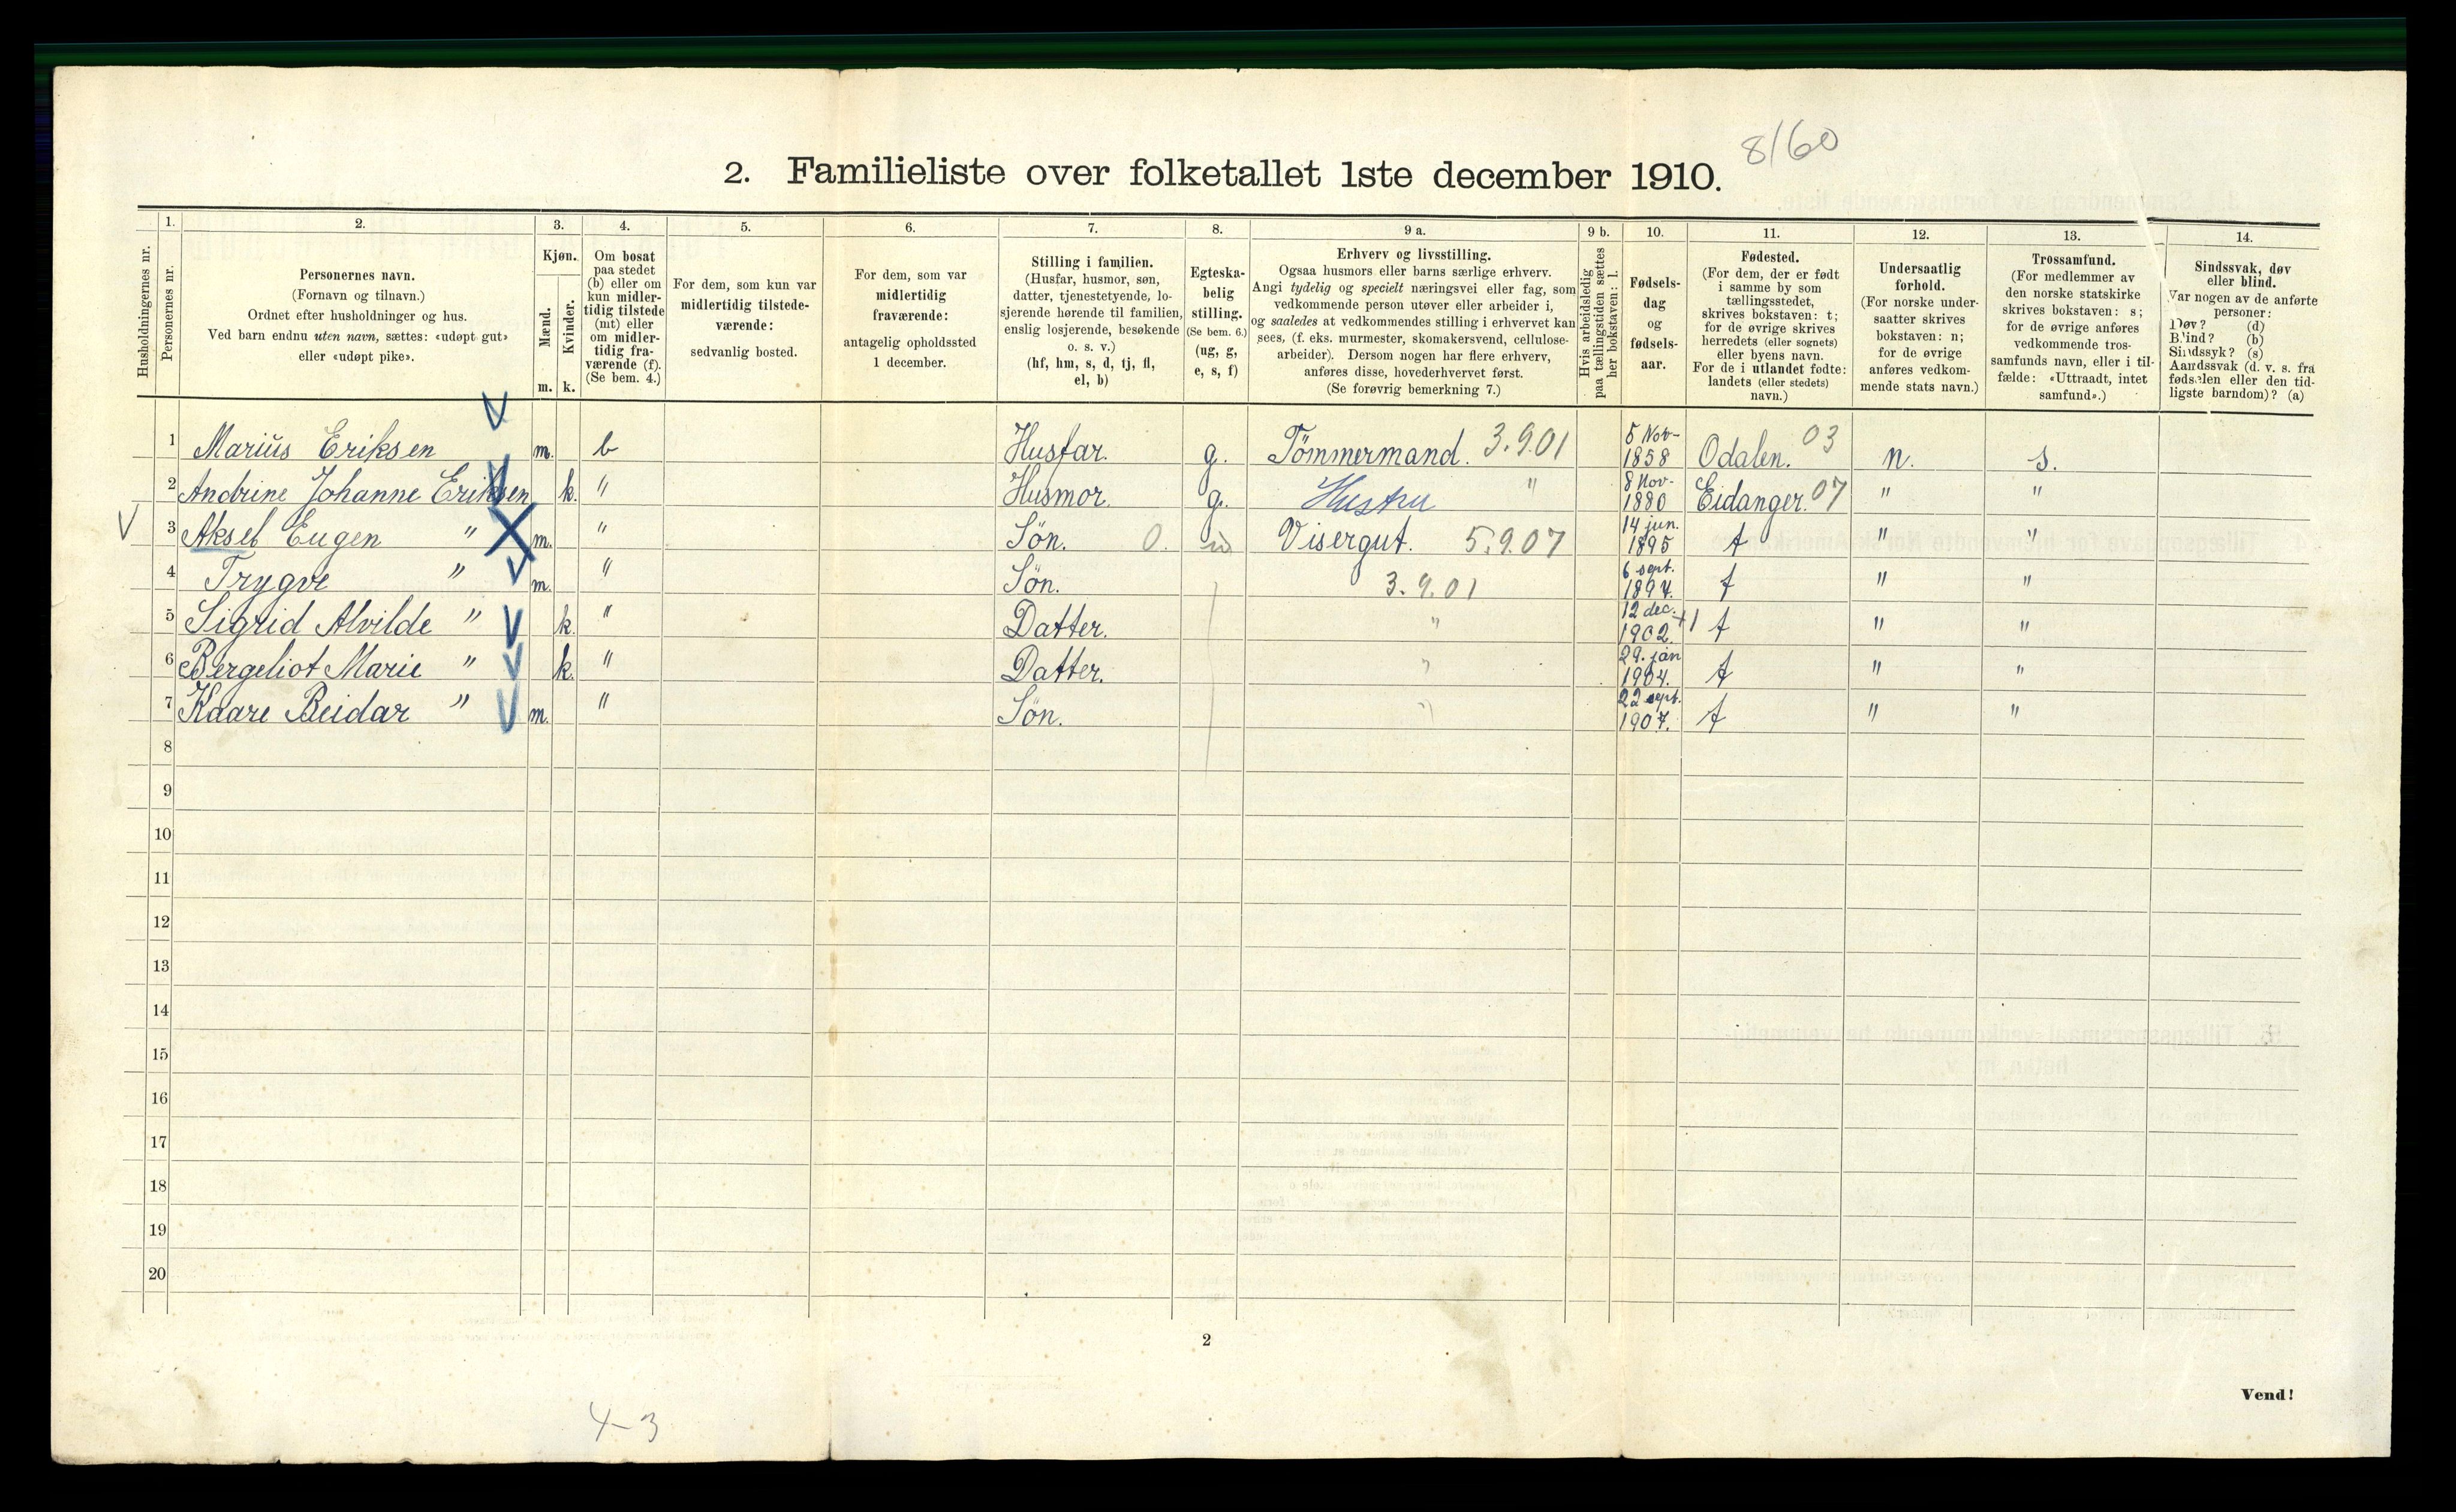 8/60
2. Familieliste over folketallet 1ste december 1910.
Husholdningernes nr.
1. Personernes nr.
2. Personernes navn. (Fornavn og tilnavn.) Ordnet efter husholdninger og hus. Ved barn endnu uten navn, sættes: «udøpt gut» eller «udøpt pike».
3. Kjøn. Mænd. m. Kvinder. k.
4. Om bosat paa stedet (b) eller om kun midlertidig tilstede (mt) eller om midlertidig fraværende (f). (Se bem. 4.)
5. For dem, som kun var midlertidig tilstedeværende: sedvanlig bosted.
6. For dem, som var midlertidig fraværende: antagelig opholdssted 1 december.
7. Stilling i familien. (Husfar, husmor, søn, datter, tjenestetyende, losjerende hørende til familien, enslig losjerende, besøkende o. s. v.) (hf, hm, s, d, tj, fl, el, b)
8. Egteskabelig stilling. (Se bem. 6.) (ug, g, e, s, f)
9 a. Erhverv og livsstilling. Ogsaa husmors eller barns særlige erhverv. Angi tydelig og specielt næringsvei eller fag, som vedkommende person utøver eller arbeider i, og saaledes at vedkommendes stilling i erhvervet kan sees, (f. eks. murmester, skomakersvend, cellulosearbeider). Dersom nogen har flere erhverv, anføres disse, hovederhvervet først. (Se forøvrig bemerkning 7.)
9 b. Hvis arbeidsledig paa tællingstiden sættes her bokstaven: l.
10. Fødselsdag og fødselsaar.
11. Fødested. (For dem, der er født i samme by som tællingsstedet, skrives bokstaven: t; for de øvrige skrives herredets (eller sognets) eller byens navn. For de i utlandet fødte: landets (eller stedets) navn.)
12. Undersaatlig forhold. (For norske undersaatter skrives bokstaven: n; for de øvrige anføres vedkommende stats navn.)
13. Trossamfund. (For medlemmer av den norske statskirke skrives bokstaven: s; for de øvrige anføres vedkommende trossamfunds navn, eller i tilfælde: «Uttraadt, intet samfund».)
14. Sindssvak, døv eller blind. Var nogen av de anførte personer: Døv? (d) Blind? (b) Sindssyk? (s) Aandssvak (d. v. s. fra fødselen eller den tidligste barndom)? (a)
1 Marius Eriksen m. b Husfar. g. Tömmermand. 3.9.01 5 Nov- 1858 Odalen. 03 n. s.
2 Andrine Johanne Eriksen k. " Husmor. g. Hustru " 8 Nov- 1880 Eidanger. 07 " "
3 Aksel Eugen " m. " Sön. O. Visergut. 5.9.07 14 jun. 1895 t " "
4 Trygve " m. " Sön. 3.9.01 6 sept. 1897. t " "
5 Sigrid Alvilde " k. " Datter. " 12 dec. 1902. t " "
6 Bergeliot Marie " k. " Datter. " 29. jan 1904. t " "
7 Kaare Reidar " m. " Sön. " 22 sept. 1907. t " "
8
9
10
11
12
13
14
15
16
17
18
19
20
2
Vend!
4-3